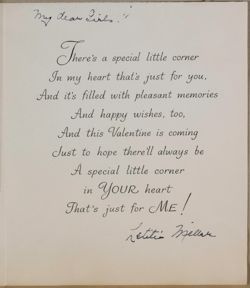 My dear Girls!
There's a special little corner
In my heart that's just for you,
And it's filled with pleasant memories
And happy wishes, too,
And this Valentine is coming
Just to hope there'll always be
A special little corner
in YOUR heart
That's just for ME!
Letitia